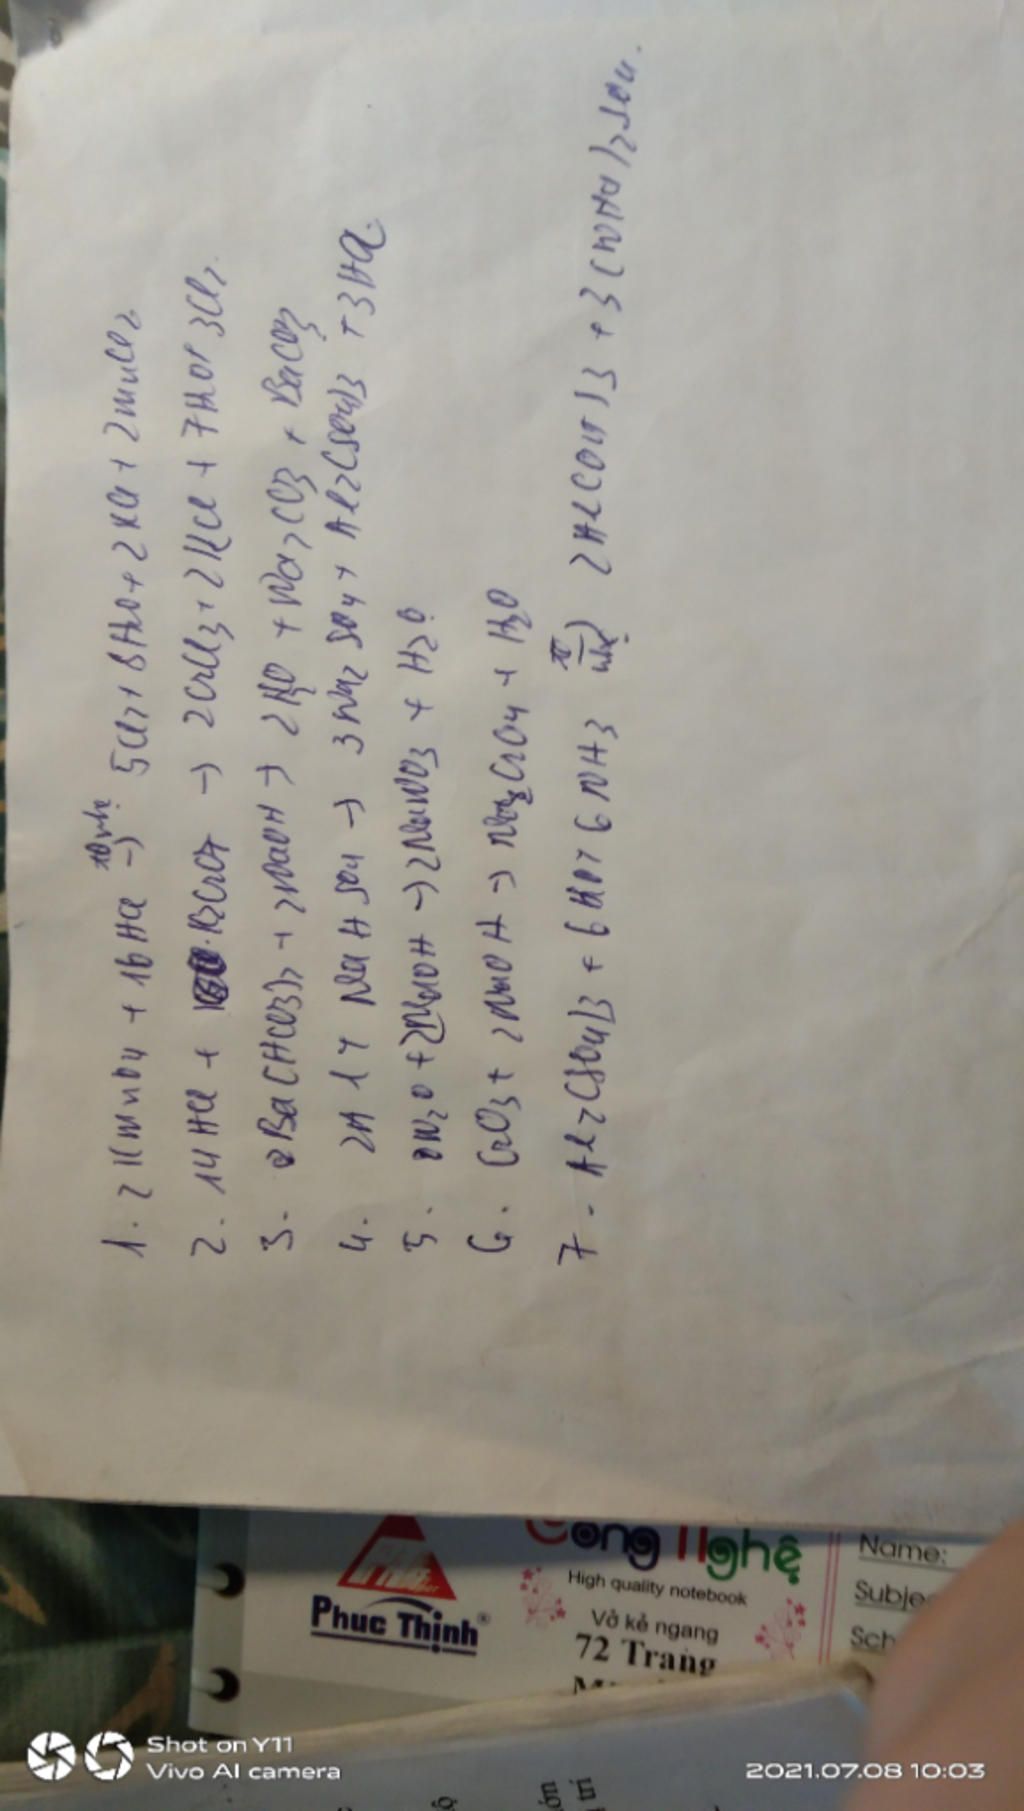 1. 2 KMnO4 + 16 HCl → 5Cl2 + 8 H2O + 2 KCl + 2 MnCl2
2. 14 HCl + K2Cr2O7 → 2CrCl3 + 2 KCl + 7 H2O + 3Cl2
3. Ba(HCO3)2 + 2NaOH → 2 H2O + Na2CO3 + BaCO3
4. 2Al + NaHSO4 → 3 Na2SO4 + Al2(SO4)3 + 3H2
5. + 2NaOH → 2NaNO3 + H2O
6. CrO3 + 2NaOH → Na2CrO4 + H2O
7. Al2(SO4)3 + 6 H2O + 6 NH3 → 2Al(OH)3 + 3(NH4)2SO4.
Phuc Thinh®
Công Nghệ
High quality notebook
Vở kẻ ngang
72 Trang
Name:
Shot on Y11
Vivo AI camera
2021.07.08 10:03